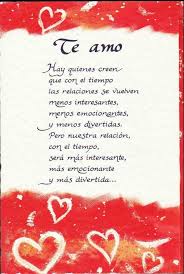 Te amo
Hay quienes creen
que con el tiempo
las relaciones se vuelven
menos interesantes,
menos emocionantes,
y menos divertidas.
Pero nuestra relación,
con el tiempo,
será más interesante,
más emocionante
y más divertida...